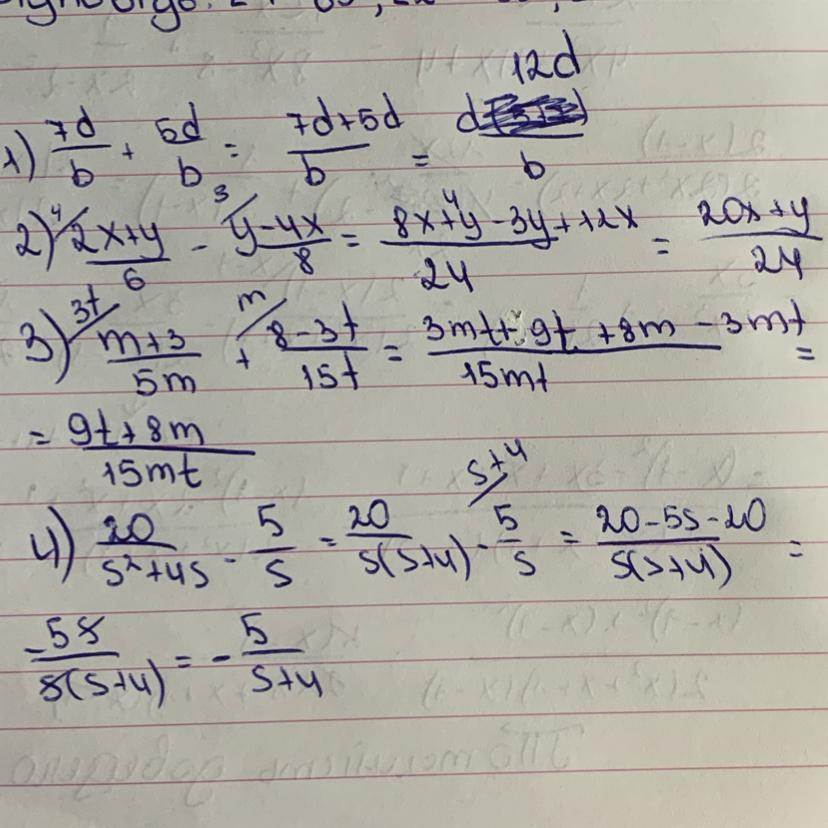 12d
1) 7d/b + 5d/b = 7d+5d/b = d/b
2) 4/ 2x+y/6 - 3/ y-4x/8 = 8x+4y-3y+12x/24 = 20x+y/24
3) 3t/ m+3/5m + m/ 8-3t/15t = 3mt+9t+8m-3mt/15mt =
= 9t+8m/15mt
4) 20/s²+4s - 5/s = 20/s(s+4) - s+4/ 5/s = 20-5s-20/s(s+4) =
-5s/s(s+4) = - 5/s+4